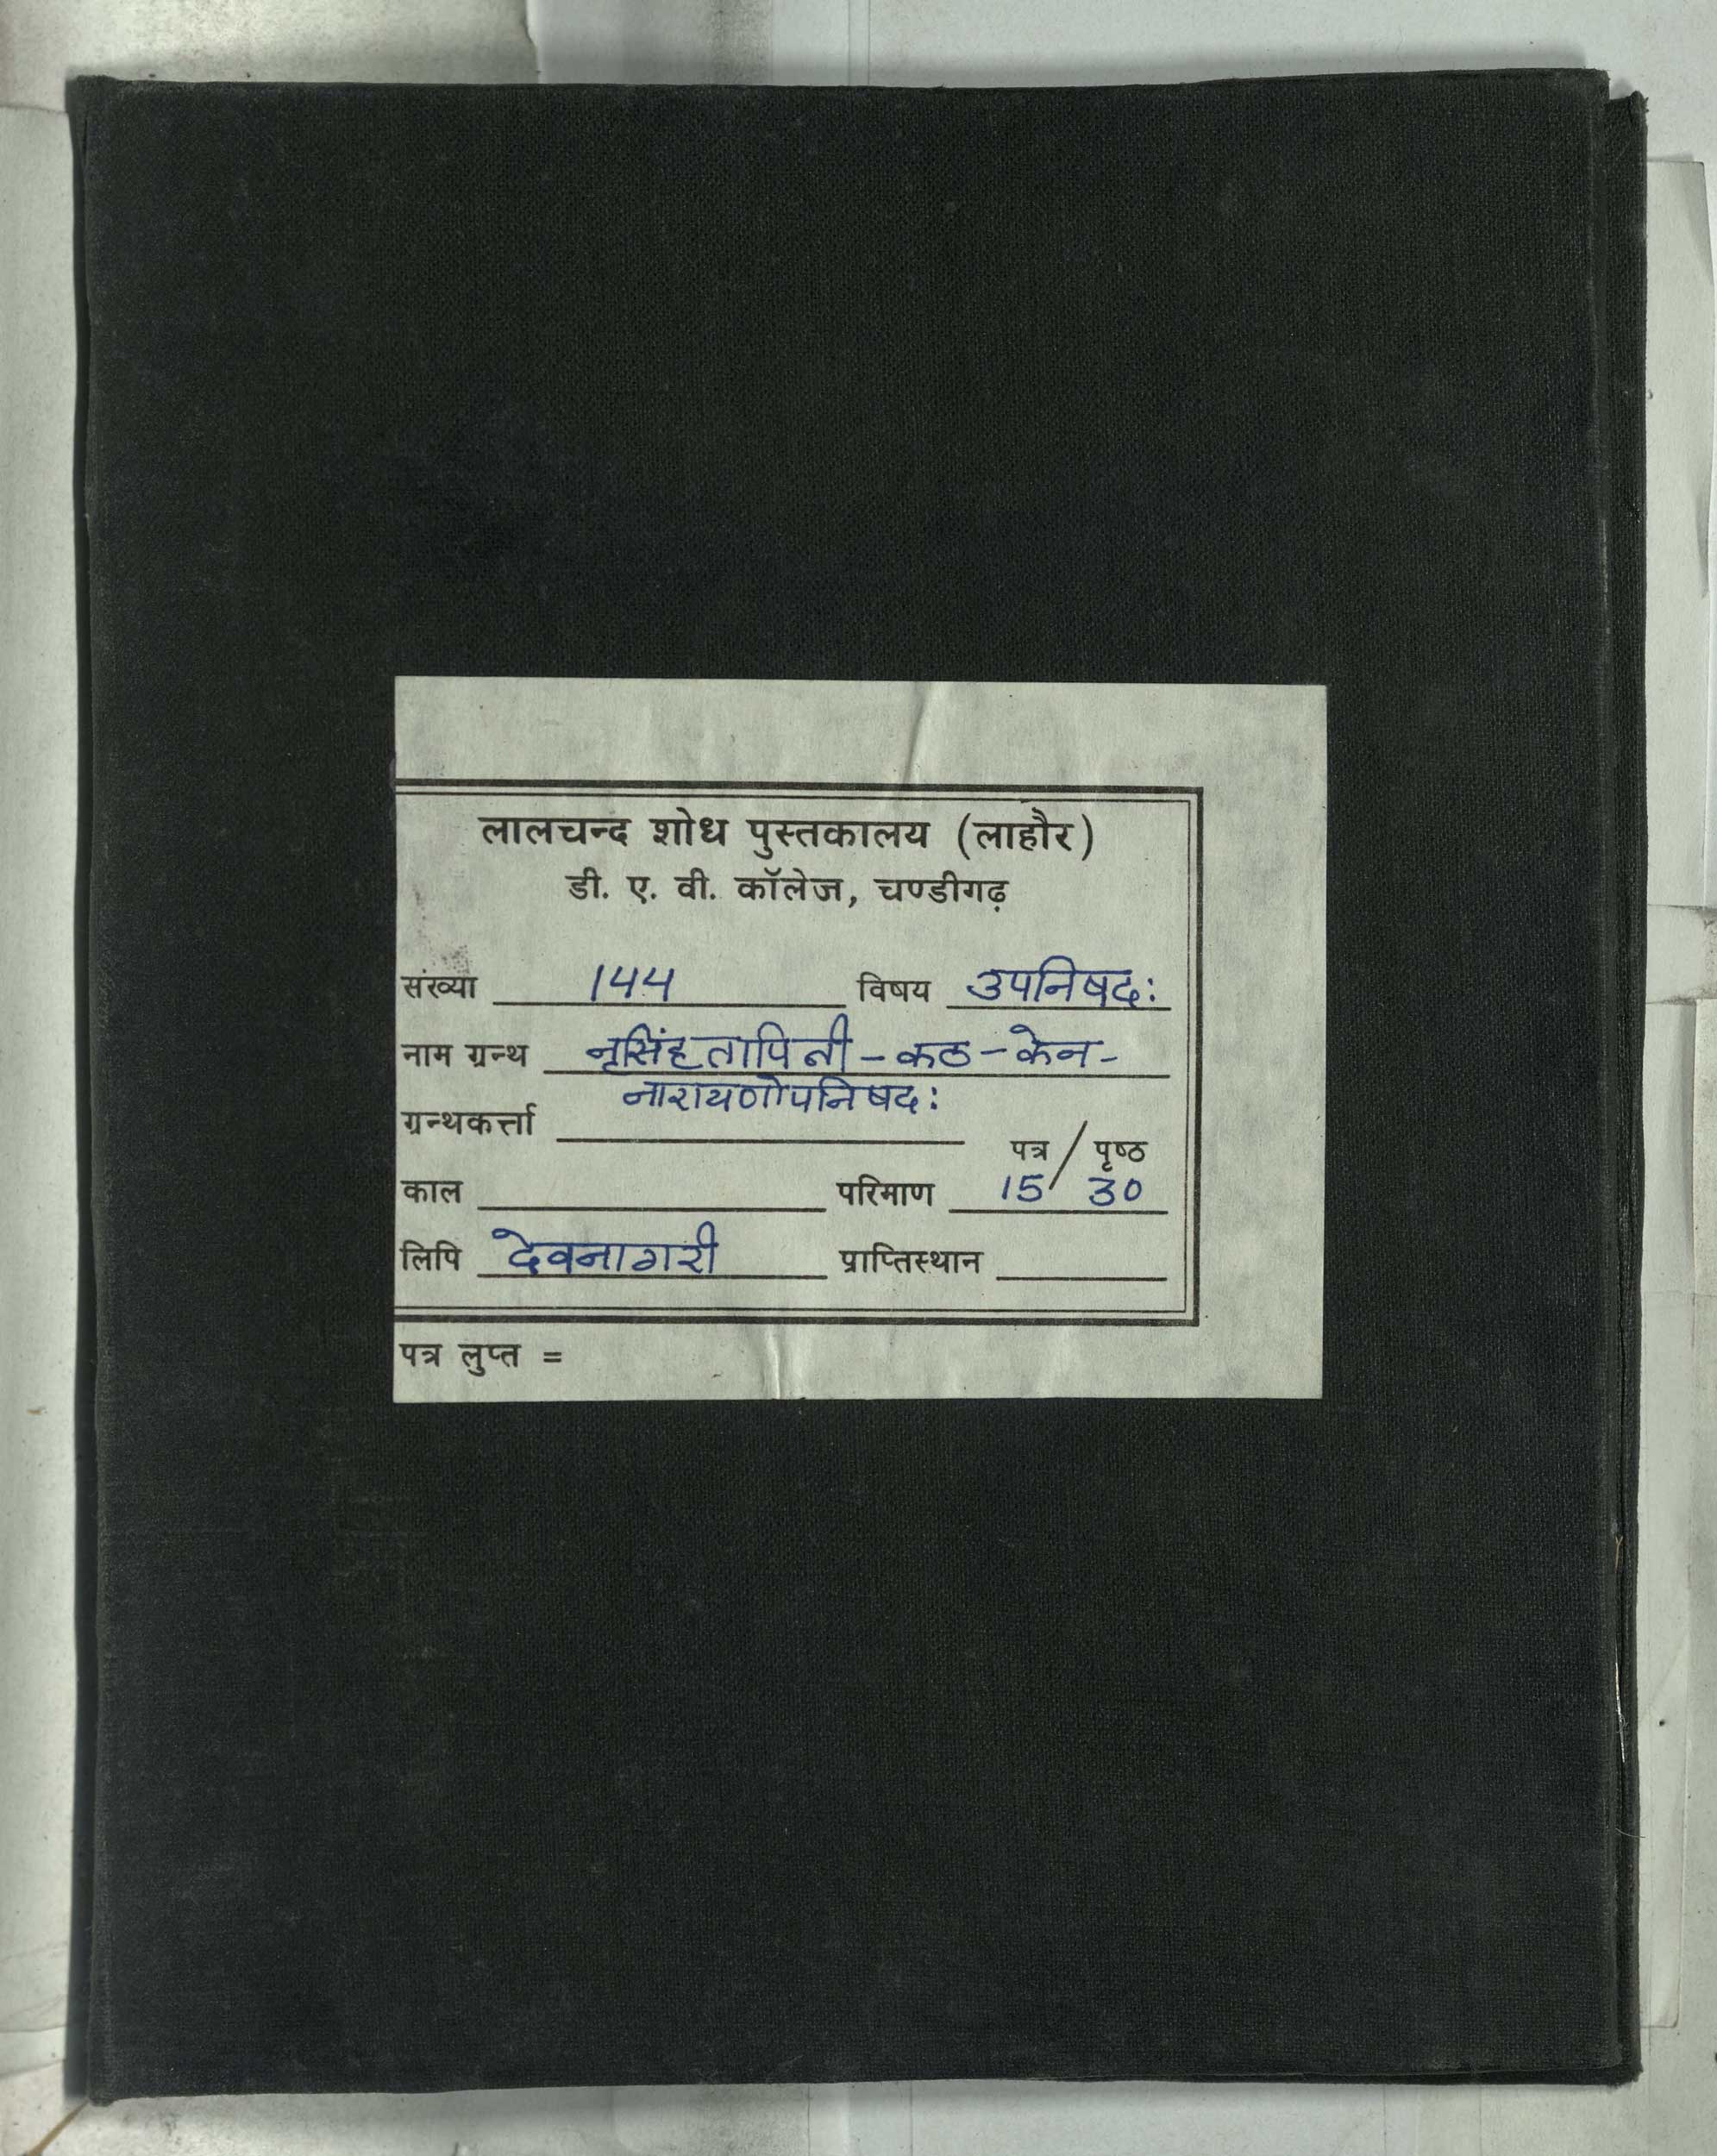 लालचन्द शोध पुस्तकालय (लाहौर)
डी. ए. वी. कॉलेज, चण्डीगढ़
संख्या 144 विषय उपनिषद:
नाम ग्रन्थ नृसिंहतापिनी-कठ-केन-
नारायणोपनिषद:
ग्रन्थकर्त्ता
पत्र / पृष्ठ
काल परिमाण 15/ 30
लिपि देवनागरी प्राप्तिस्थान
पत्र लुप्त =